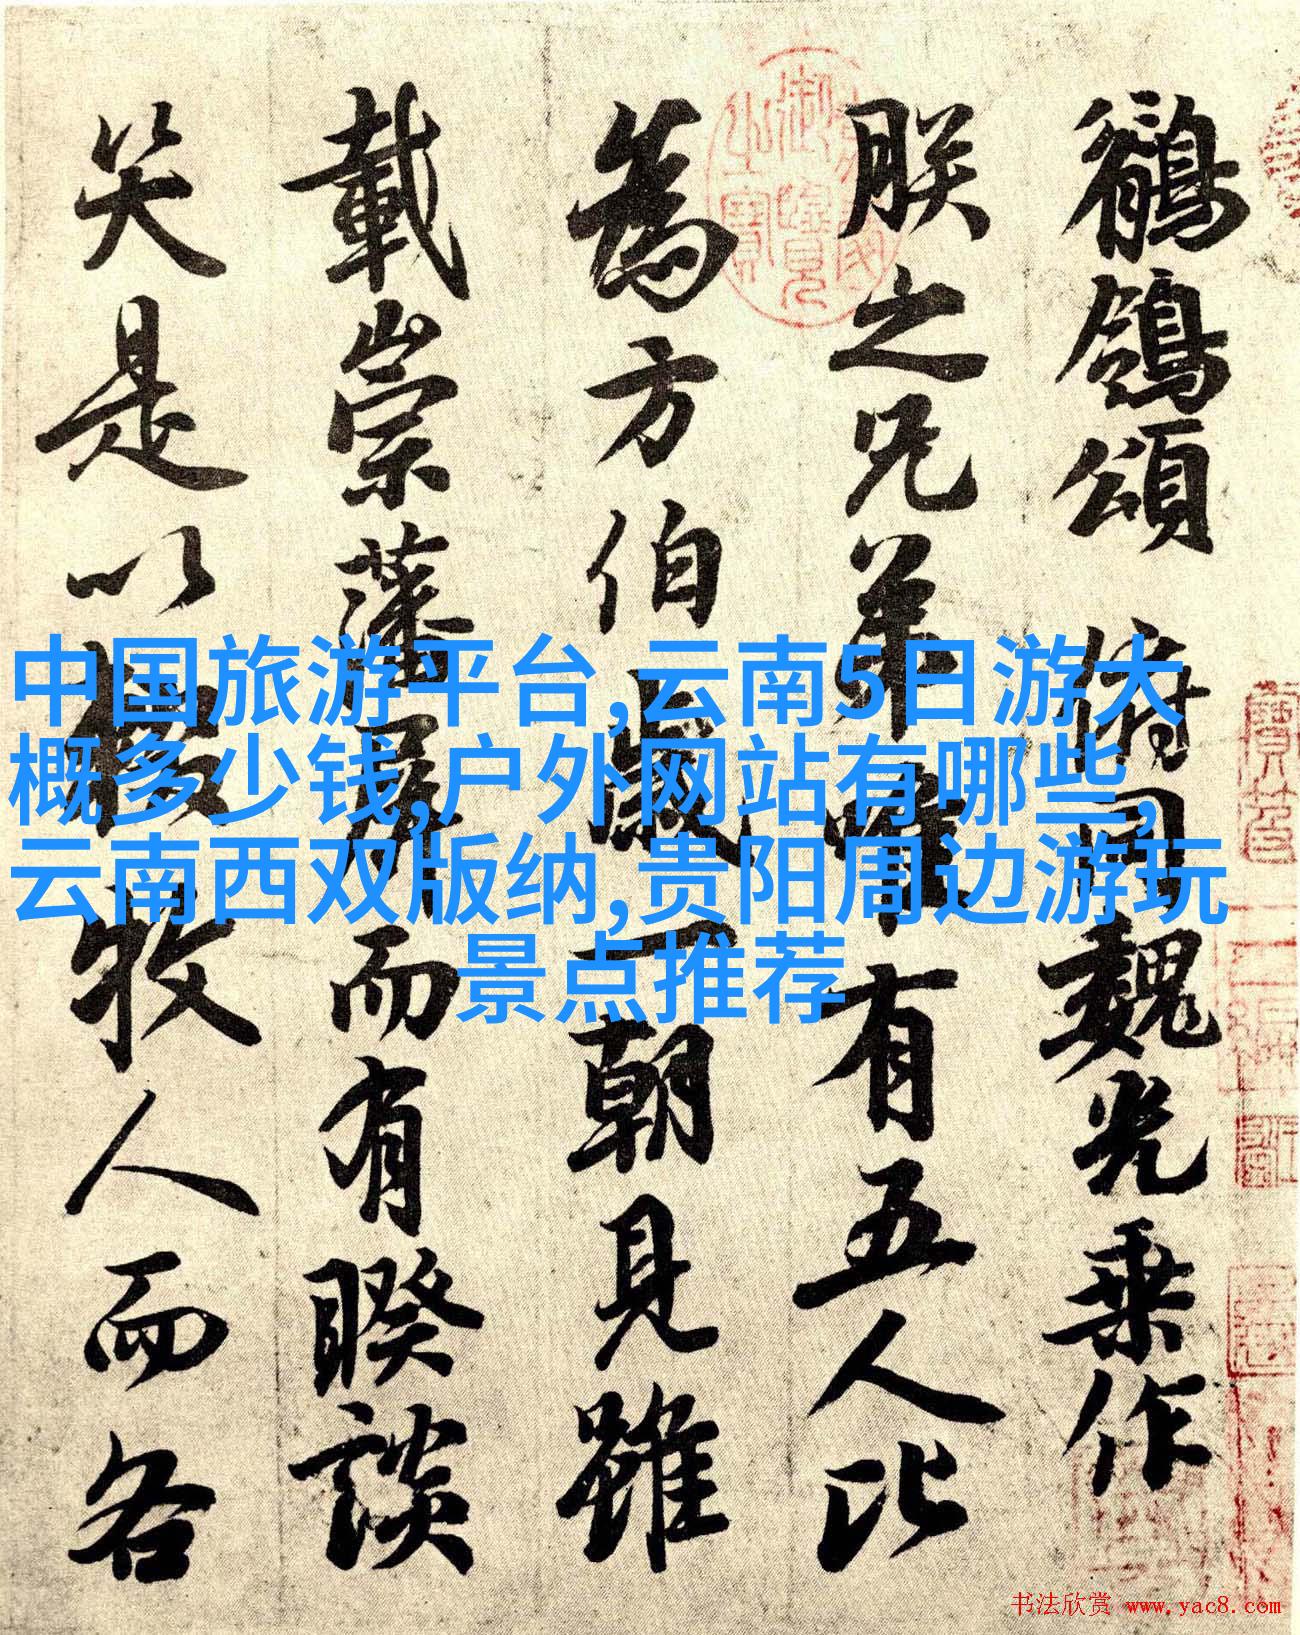 鶺鴒頌 俯同魏光乘作
朕之兄弟唯有五人比
為方伯歲一朝見雖
載崇藩屏而有睽談
笑是以輟牧人而各
中国旅游平台,云南5日游大
概多少钱,户外网站有哪些,
云南西双版纳,贵阳周边游玩
景点推荐
书法欣赏 www.yac8.com